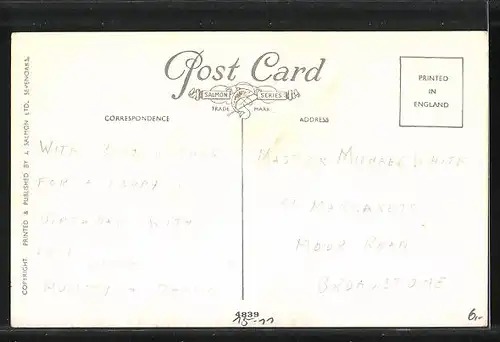 Post Card
SALMON SERIES
TRADE MARK
CORRESPONDENCE
ADDRESS
PRINTED
IN
ENGLAND
COPYRIGHT. PRINTED & PUBLISHED BY J. SALMON LTD. SEVENOAKS.
WITH
FOR A HAPPY
BIRTHDAY WITH
MASTER MICHAEL WHITE
ST MARGARETS
MOOR ROAD
BROADSTONE
4839
15-11
6,-